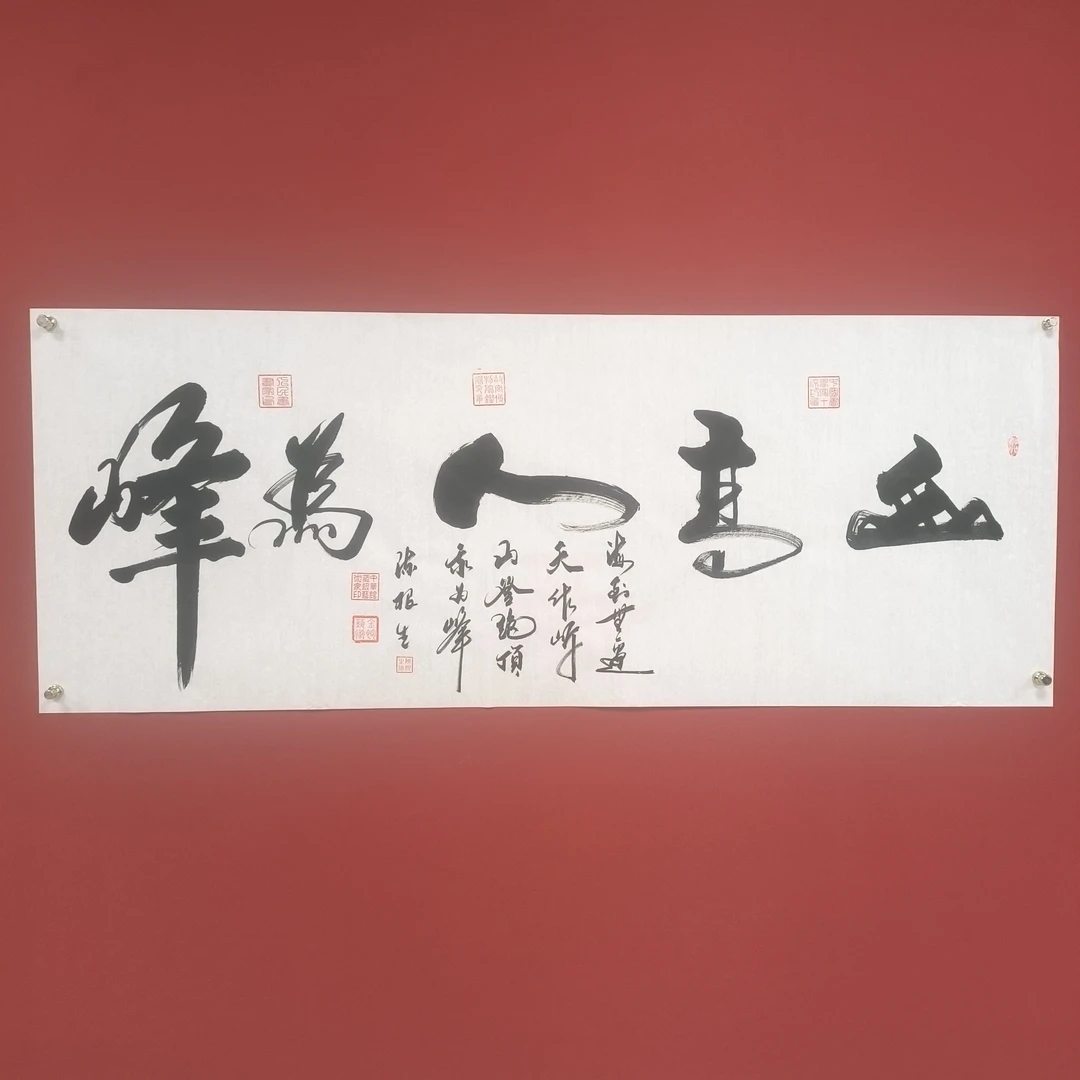 山高人为峰
海到無邊
天作岸
山登絕頂
我為峰
陈根生